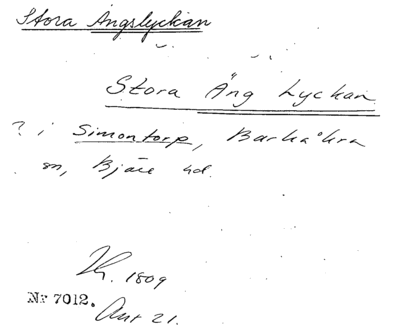 Stora Ängslyckan
Stora Äng Lyckan
? i Simontorp, Barkåkra
sn, Bjäre hd.
Th. 1809
Nr 7012.
Akt 21.